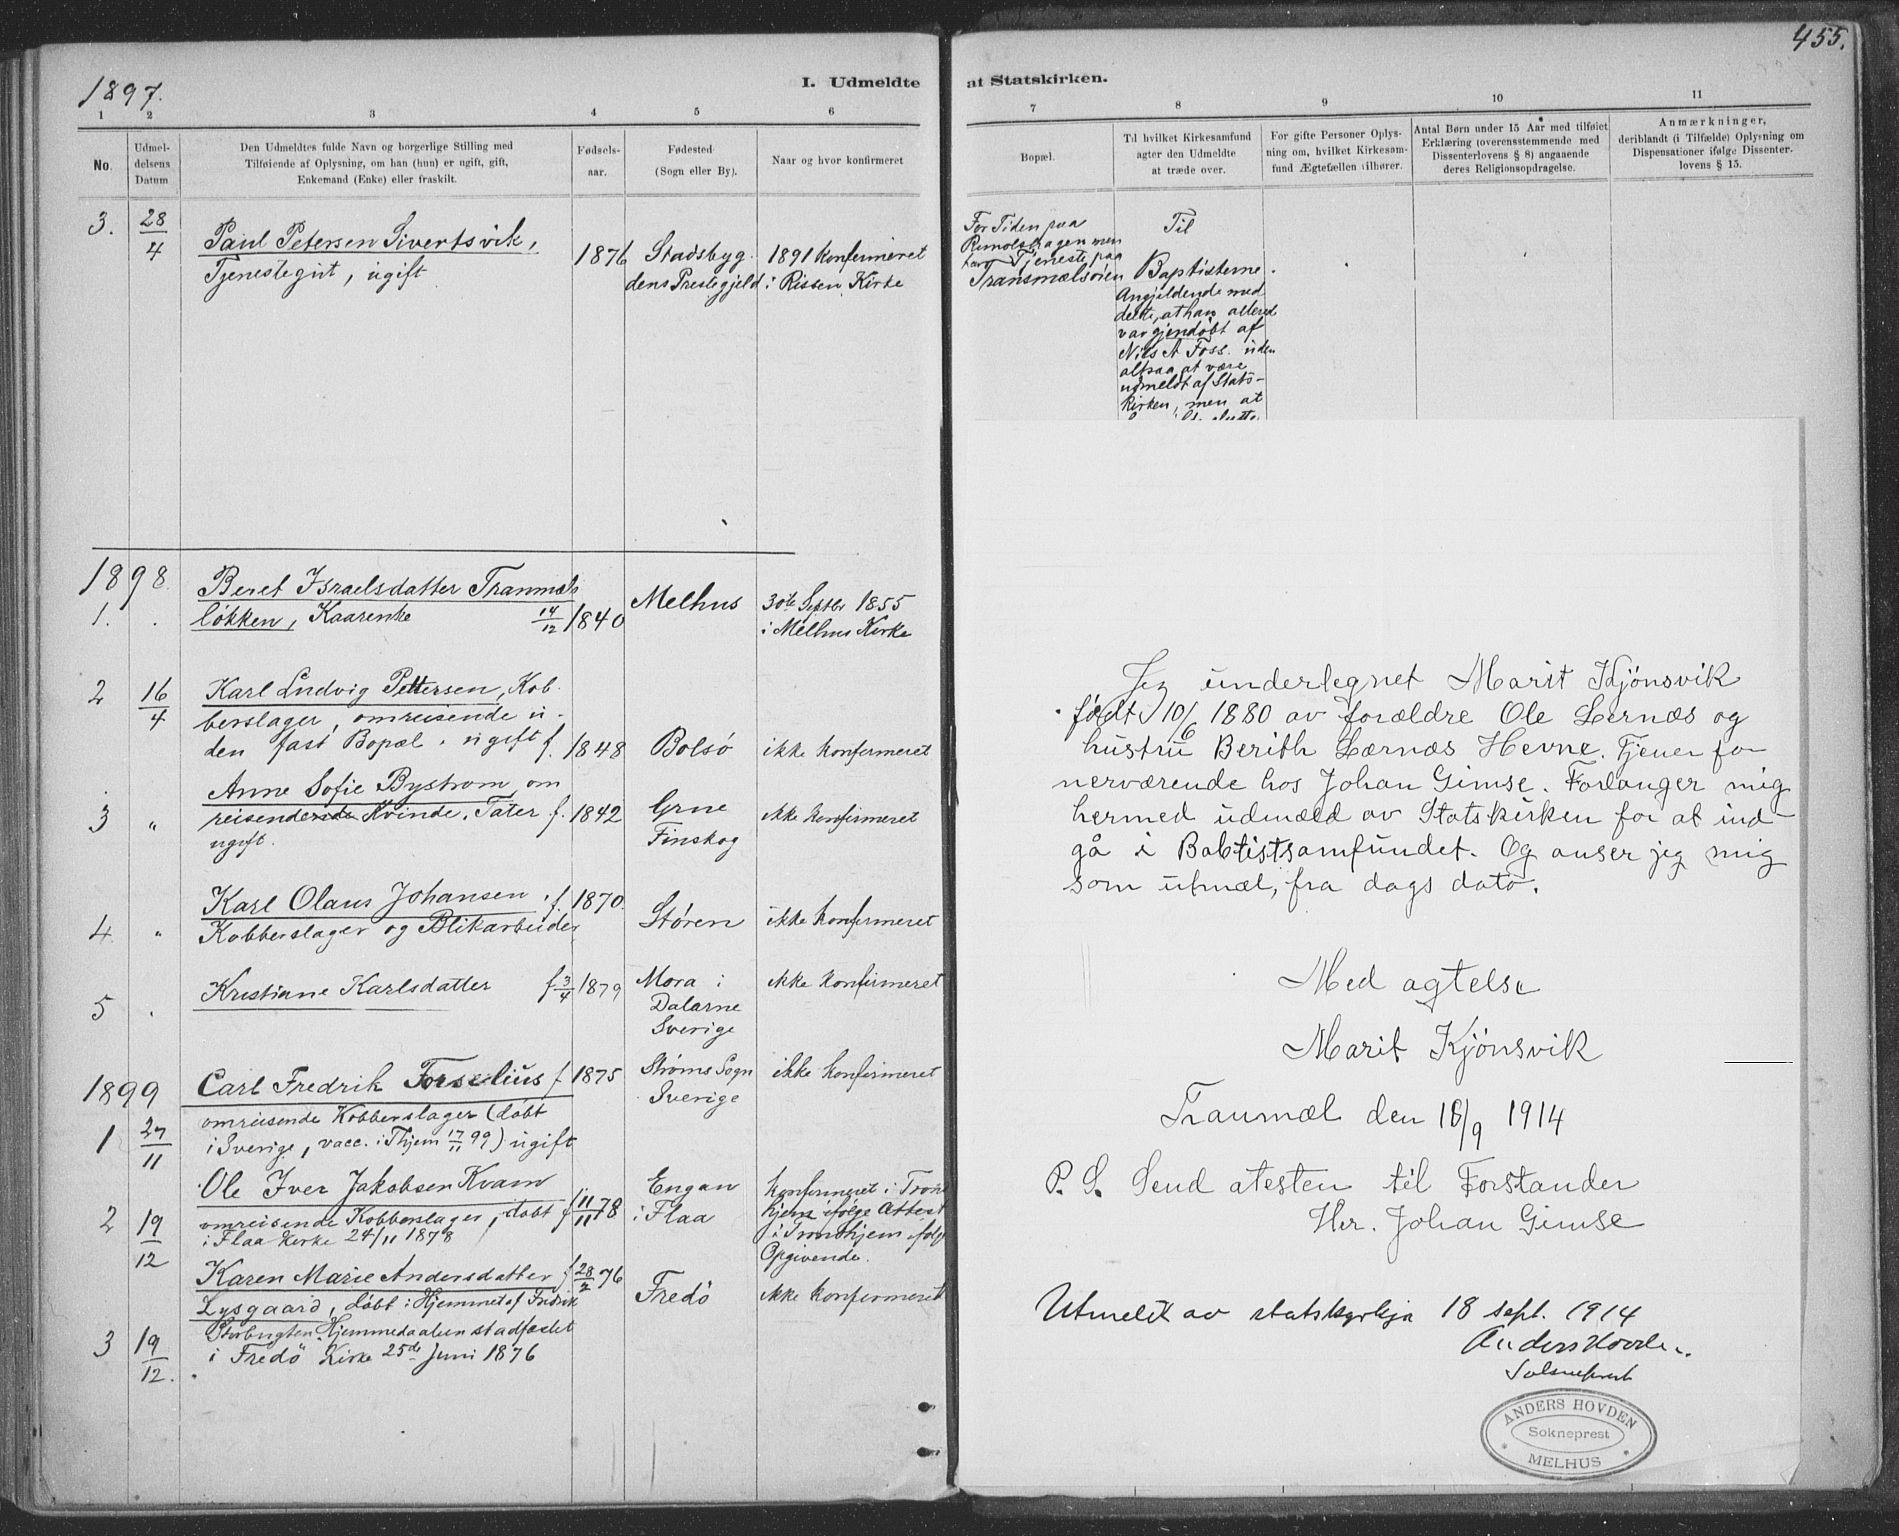 1897.
455.
I. Udmeldte
at Statskirken.
1 2 3 4 5 6
7 8 9 10 11
No.
Udmel-
delsens
Datum
Den Udmeldtes fulde Navn og borgerlige Stilling med
Tilføiende af Oplysning, om han (hun) er ugift, gift,
Enkemand (Enke) eller fraskilt.
Fødsels-
aar.
Fødested
(Sogn eller By).
Naar og hvor konfirmeret
Bopæl.
Til hvilket Kirkesamfund
agter den Udmeldte
at træde over.
For gifte Personer Oplys-
ning om, hvilket Kirkesam-
fund Ægtefællen tilhører.
Antal Børn under 15 Aar med tilføiet
Erklæring (overensstemmende med
Dissenterlovens § 8) angaaende
deres Religionsopdragelse.
Anmærkninger,
deriblandt (i Tilfælde) Oplysning om
Dispensationer ifølge Dissenter-
lovens § 15.
3. 28/4
Paul Petersen Sivertsvik,
Tjenestegut, ugift
1876
Stadsbyg-
dens Prestegjeld
1891 konfirmeret
i Rissen Kirke
For Tiden paa
men
Tjeneste paa
Tranmælsøien
Til
Baptisterne.
Angjeldende med
delte, at han allered
var gjendøbt af
Nils A Foss. uden
altsaa at være
udmeldt af Stats-
kirken, men at
1898
1. .
Beret Israelsdatter Tranmæls
løkken, Kaarenke 14/12 1840
Melhus
30te Septbr 1855
i Melhus Kirke
2 16/4
Karl Ludvig Pettersen, Kob-
berslager, omreisende u-
den fast Bopæl. ugift f. 1848
Bolsø
ikke konfirmeret
3 "
Anne Sofie Bystrom, om
reisendende Kvinde, Tater f. 1842
ugift.
Grue
Finskog
ikke konfirmeret
4. "
Karl Olaus Johansen, f. 1870.
Kobberslager og Blikarbeider
Støren
ikke konfirmeret
5 .
Kristiane Karlsdatter f 3/4 1879
Mora i
Dalarne
Sverige
ikke konfirmeret
1899
1 27/11
Carl Fredrik Forselius f 1875
omreisende Kobberslager (døbt
i Sverige, vacc. i Thjem 17/11 99) ugift
Strøms Sogn
Sverige
ikke konfirmeret
2 19/12
Ole Iver Jakobsen Kvam
omreisende Kobberslager, døbt f 11/11 78
i Flaa Kirke 24/11 1878
Engan
i Flaa
konfirmeret i Tron
hjem ifølge Attest
i Tronhjem ifølg
Opgivende.
3 19/12.
Karen Marie Andersdatter f 28/2 76
Lysgaard, døbt i Hjemmet af Fredrik
Storbugten. Hjemmedaaben stadfæstet
i Fredö Kirke 25de Juni 1876
Fredö
ikke konfirmeret
Jeg underlegnet Marit Kjönsvik
födt 10/6 1880 av forældre Ole Lernæs og
hustru Berith Lærnæs Hevne. Tjener for
nerværende hos Johan Gimse. Forlanger mig
hermed udmæld av Statskirken for at ind-
gå i Babtistsamfundet. Og anser jeg mig
som utmæl, fra dags dato.
Med agtelse
Marit Kjönsvik
Tranmæl den 18/9 1914
P. S. Send atesten til Forstander
Her. Johan Gimse
Utmeldt av statskyrkja 18 sept. 1914
Anders Hovden.
Sokneprest
ANDERS HOVDEN
Sokneprest
MELHUS